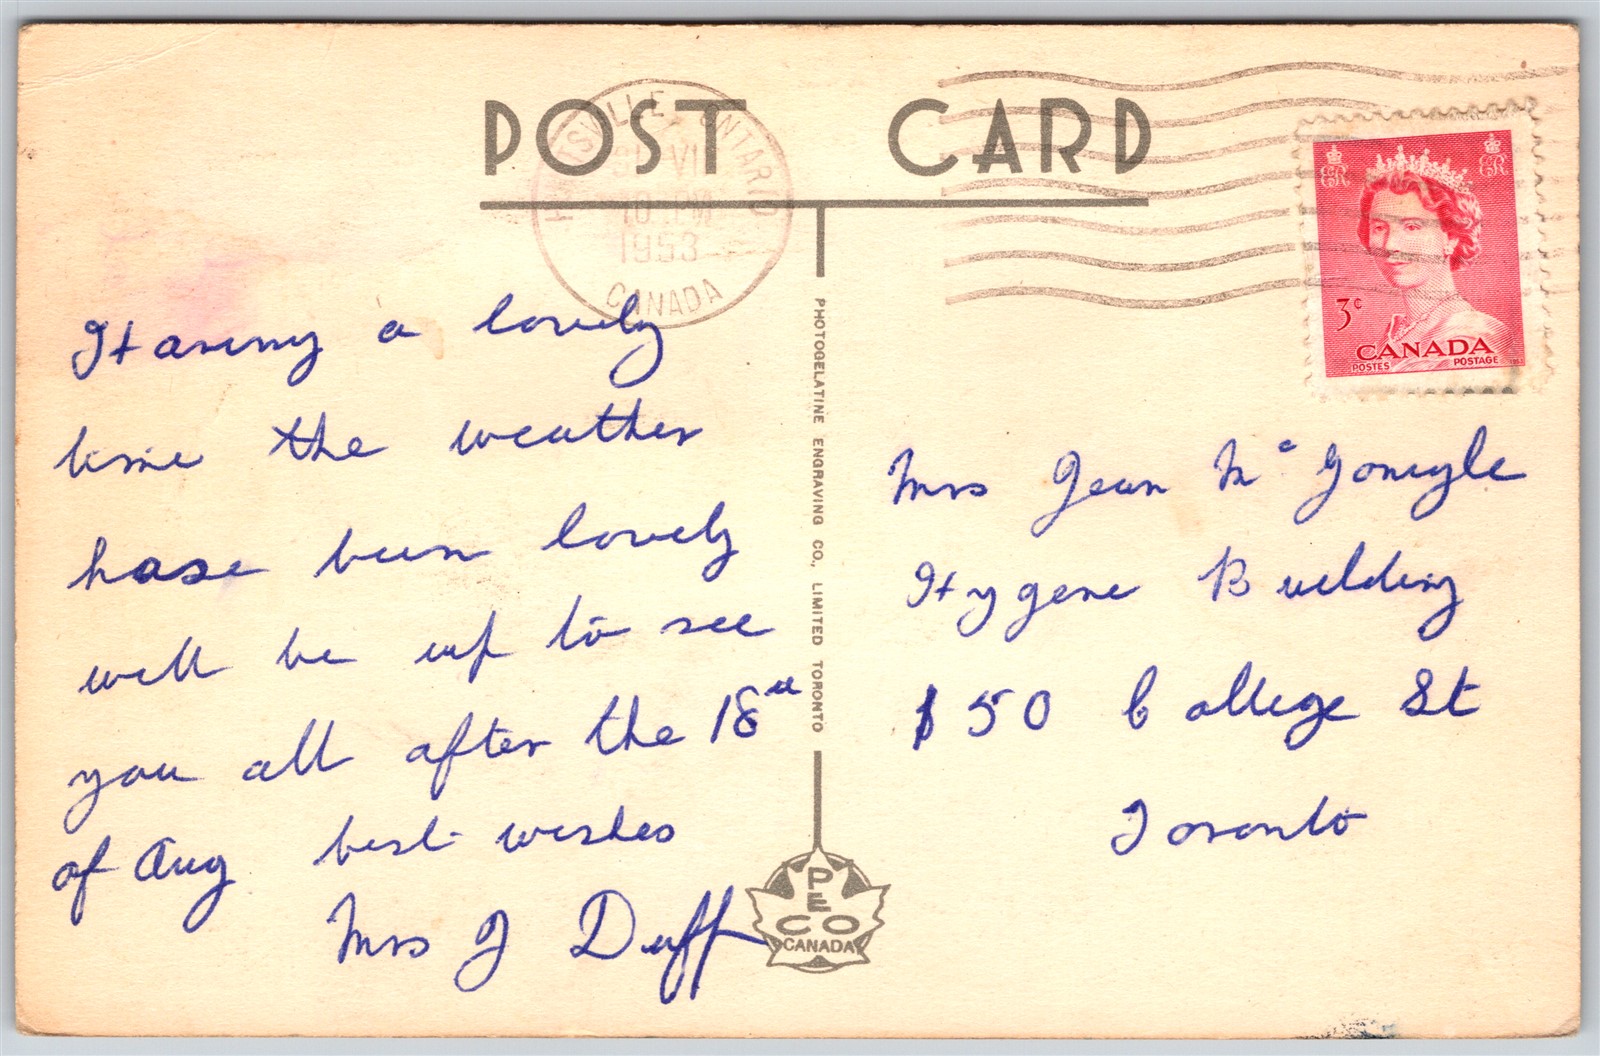 POST CARD
HUNTSVILLE, ONTARIO
VII
10 PM
1953
CANADA
3¢
CANADA
POSTES POSTAGE
Having a lovely
time the weather
hase been lovely
will be up to see
you all after the 18
of Aug best wishes
Mrs J Duff
PHOTOGELATINE ENGRAVING CO., LIMITED TORONTO
PECO
CANADA
Mrs Jean Mc Gonigle
Hygene Building
50 College St
Toronto